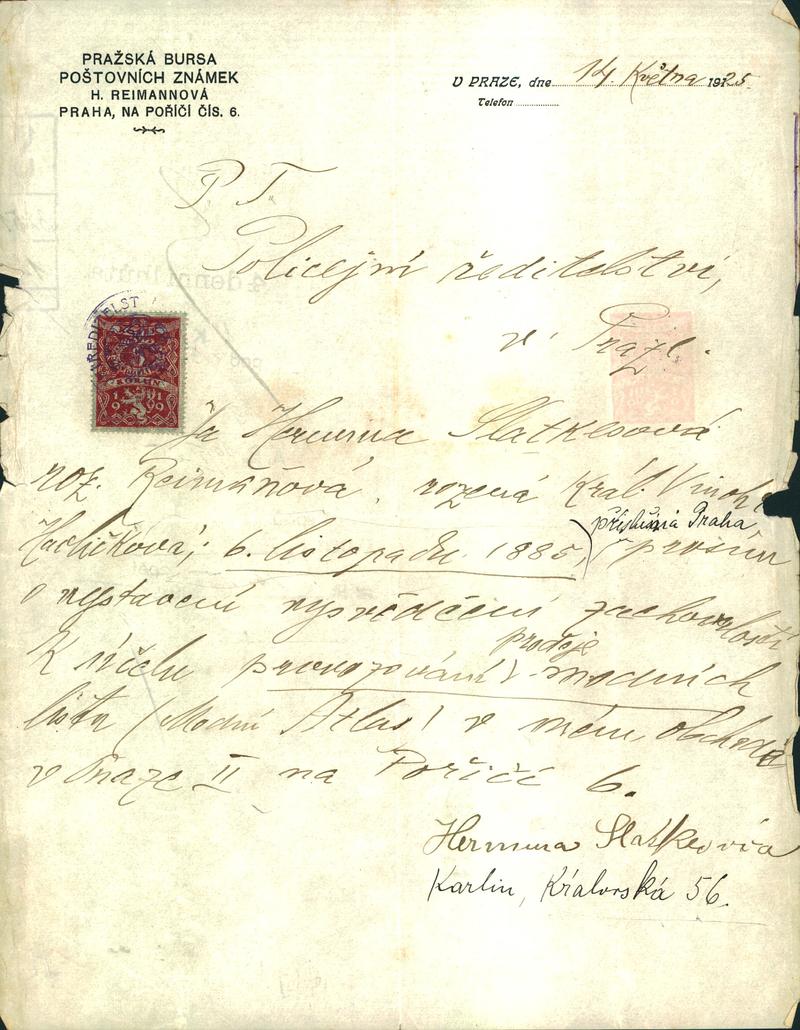 PRAŽSKÁ BURSA
POŠTOVNÍCH ZNÁMEK
H. REIMANNOVÁ
PRAHA, NA POŘÍČÍ ČÍS. 6.
V PRAZE, dne 14. Května 1925.
Telefon
P. T.
Policejní ředitelství,
v Praze.
ŘEDITELST
KORUN
1919
Já Hermina Slatkesová
roz. Reimanová, rozená Král. Vinoh
6. listopadu 1885, příslušná Praha prosím
o vystavení vysvědčení zachovalosti
K účelu provozování prodeje modních
listů (Modní Atlas) v mém obchodě
v Praze II na Poříčí 6.
Hermina Slatkesová
Karlín, Královská 56.